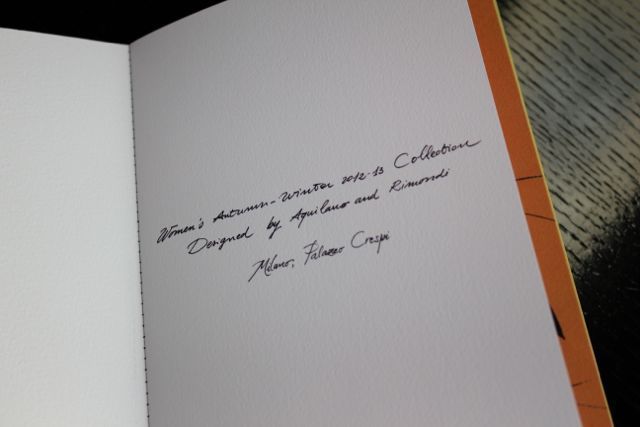 Women's Autumn-Winter 2012-13 Collection
Designed by Aquilano and Rimondi
Milano, Palazzo Crespi